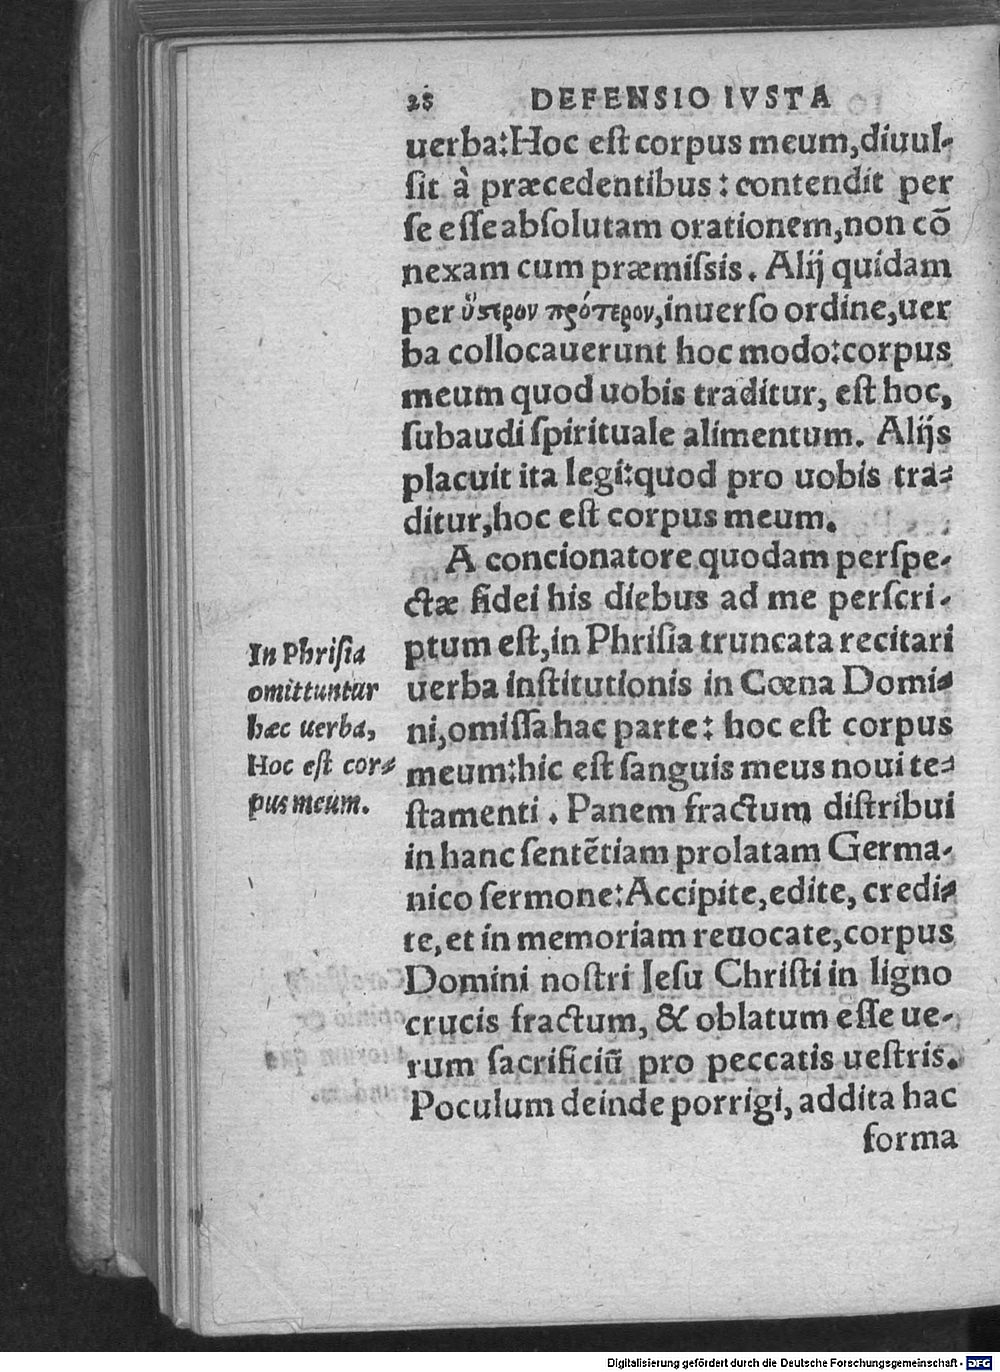 28 DEFENSIO IVSTA
uerba:Hoc eſt corpus meum,diuul-
ſit à præcedentibus: contendit per
ſe eſſe abſolutam orationem,non cō
nexam cum præmiſsis. Alij quidam
per ὕστρον πρότερον,inuerſo ordine,uer
ba collocauerunt hoc modo:corpus
meum quod uobis traditur, eſt hoc,
ſubaudi ſpirituale alimentum. Alijs
placuit ita legi:quod pro uobis tra-
ditur,hoc eſt corpus meum.
A concionatore quodam perſpe-
ctæ fidei his diebus ad me perſcri-
ptum eſt,in Phriſia truncata recitari
uerba inſtitutionis in Cœna Domi-
ni,omiſſa hac parte: hoc eſt corpus
meum:hic eſt ſanguis meus noui te-
ſtamenti. Panem fractum diſtribui
in hanc ſentētiam prolatam Germa-
nico ſermone:Accipite,edite, credi-
te,et in memoriam reuocate,corpus
Domini noſtri Ieſu Chriſti in ligno
crucis fractum, & oblatum eſſe ue-
rum ſacrificiū pro peccatis ueſtris.
Poculum deinde porrigi, addita hac
forma
In Phriſia
omittuntur
hæc uerba,
Hoc eſt cor-
pus meum.
Digitalisierung gefördert durch die Deutsche Forschungsgemeinschaft - DFG